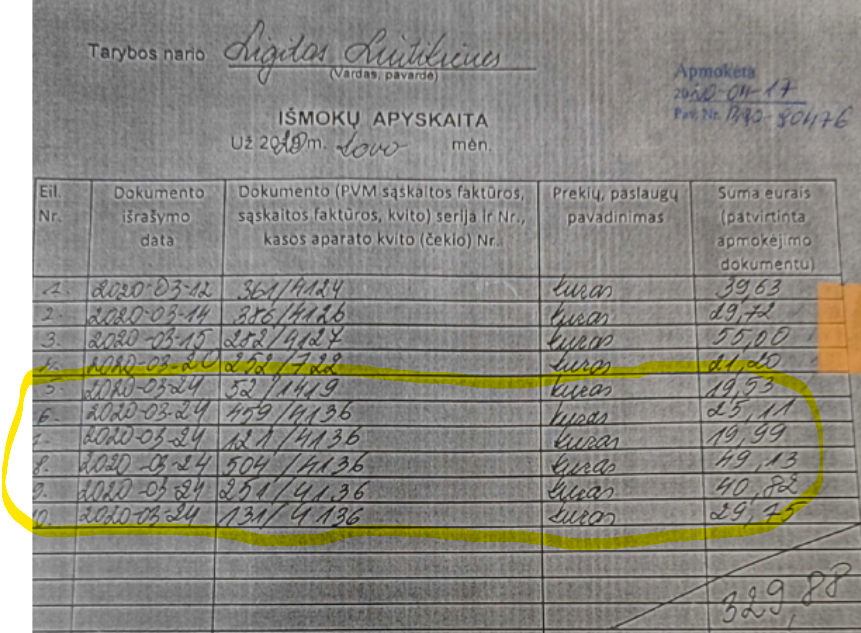 Tarybos nario Ligitos Liutikienės
(Vardas, pavardė)
Apmokėta
2020-04-17
Pav. Nr. 80476
IŠMOKŲ APYSKAITA
Už 2020 m. kovo mėn.
Eil. Nr. Dokumento išrašymo data Dokumento (PVM sąskaitos faktūros, sąskaitos faktūros, kvito) serija ir Nr., kasos aparato kvito (čekio) Nr. Prekių, paslaugų pavadinimas Suma eurais (patvirtinta apmokėjimo dokumentu)
1. 2020-03-12 361/4124 kuras 39,63
2. 2020-03-14 386/4126 kuras 29,72
3. 2020-03-15 282/4127 kuras 55,00
4. 2020-03-20 252/722 kuras 21,20
5. 2020-03-24 52/1419 kuras 19,53
6. 2020-03-24 459/4136 kuras 25,11
7. 2020-03-24 121/4136 kuras 19,99
8. 2020-03-24 504/4136 kuras 49,13
9. 2020-03-24 251/4136 kuras 40,82
10. 2020-03-24 131/4136 kuras 29,75
329,88